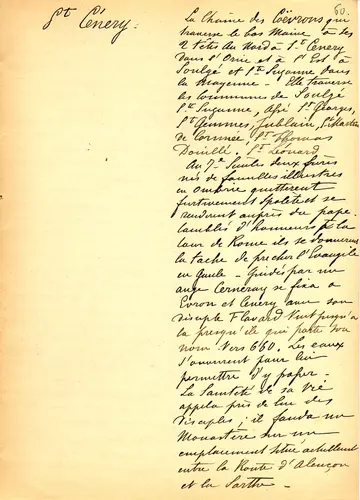 60.
St Cénery.
La Chaîne des Coëvrons qui
traverse le bas Maine a ses
2 têtes au Nord à St Cenery
dans l'Orne et à l'Est à
Soulgé et Ste Suzanne dans
la Mayenne. - Elle traverse
les communes de Soulgé
Ste Suzanne, St Georges,
Ste Gemmes, Jublain, St Martin
de Connée, St Thomas
Douillé, St Léonard
Au 7e Siècle deux frères
nés de familles illustres
en Ombrie quittèrent
furtivement Spolète et se
rendirent auprès du pape.
Comblés d'honneurs à la
cour de Rome ils se donnèrent
la tâche de prêcher l'Evangile
en Gaule - Guidés par un
ange Cerneray se fixa à
Evron et Cenery avec son
disciple Flavard vint jusqu'à
la presqu'île qui porte son
nom vers 660. Les eaux
s'ouvrirent pour lui
permettre d'y passer -
La Sainteté de sa Vie
appela près de lui des
disciples ; il fonda un
Monastère sur un
emplacement situé actuellement
entre la Route d'Alençon
et la Sarthe -